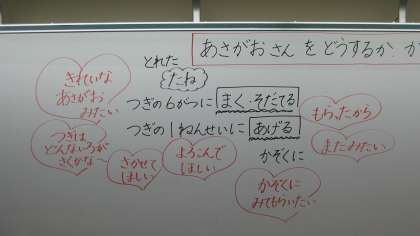 あさがおさんをどうするか
とれた
たね
きれいな
あさがお
みたい
つぎの6がつに まく・そだてる
つぎの1ねんせいに あげる
かぞくに
もらったから
まだみたい
つぎは
どんないろが
さくかな～
さかせて
ほしい
よろこんで
ほしい
かぞくに
みてもらいたい